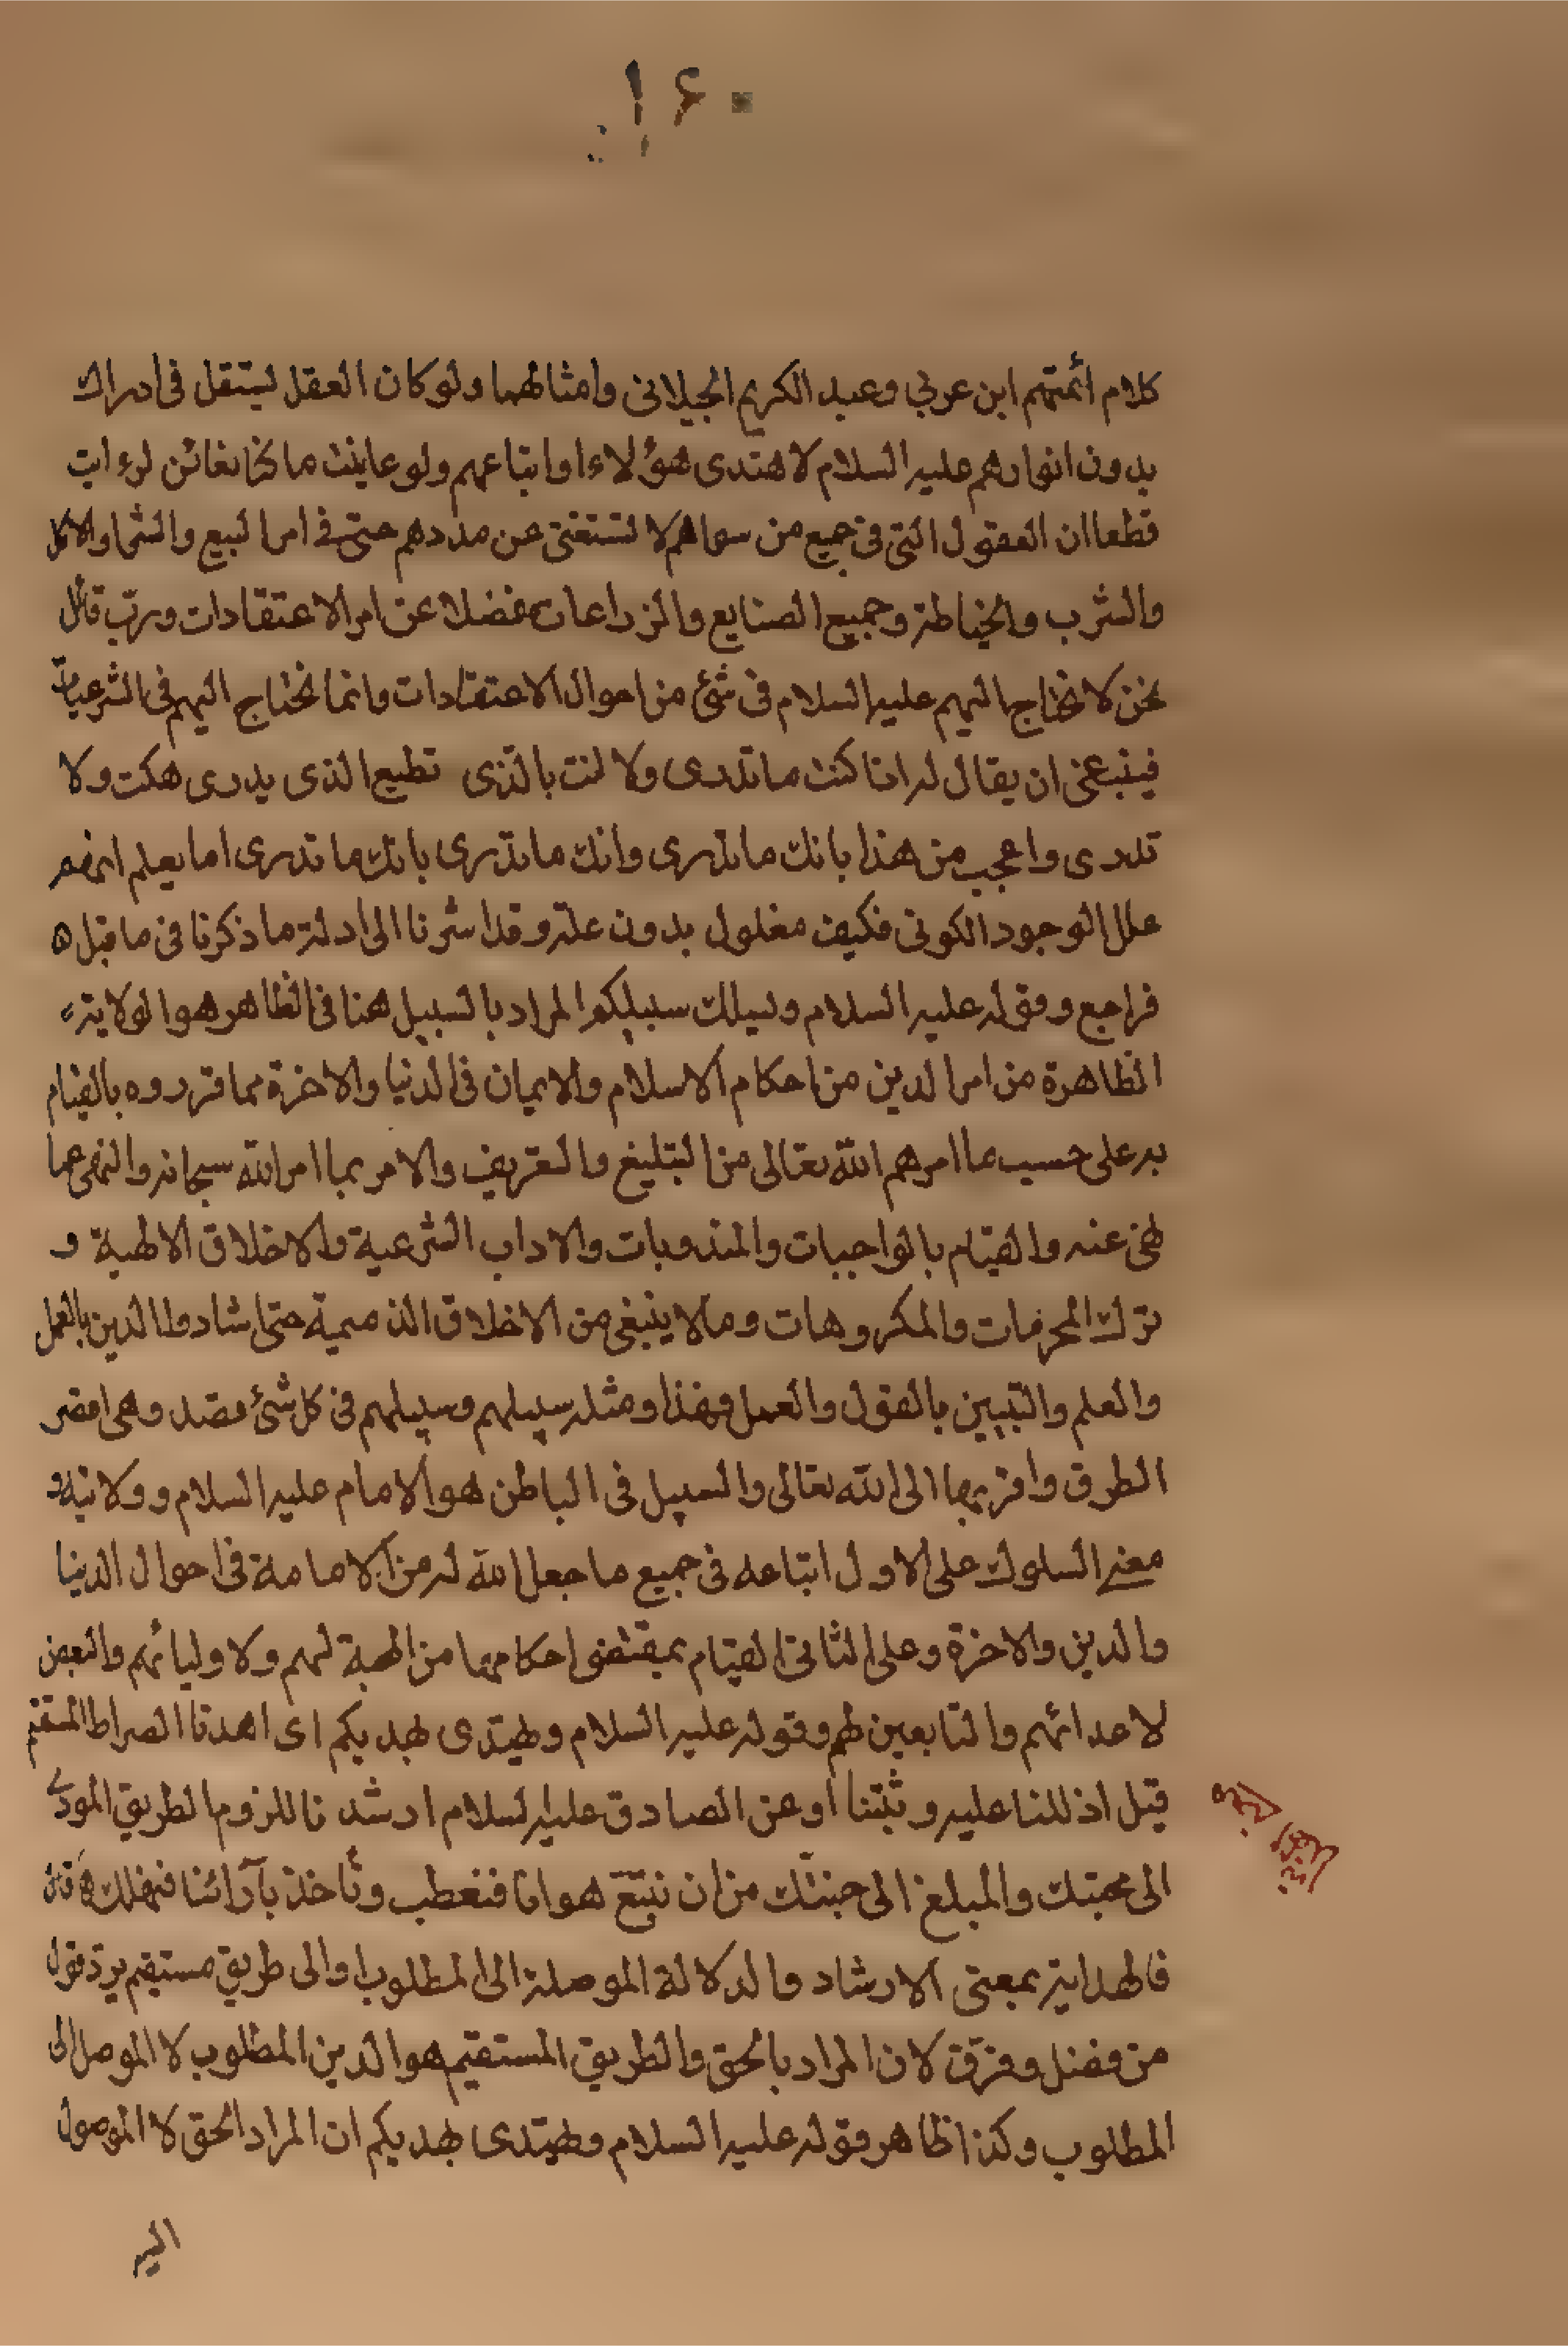 كلام أئمتهم ابن عربي وعبد الكريم الجيلانى وامثالهما ولو كان العقل يستقل فى ادراك
بدون انوارهم عليه السلام لاهتدى هؤلاء او اتباعهم ولو عاينت ما كنا نعائن لرءايت
قطعا ان العقول التى فى جميع من سواهم لا تستغنى عن مددهم حتى فى امر البيع والشرا والاكل
والشرب والخياطة وجميع الصنايع والزراعات فضلا عن امر الاعتقادات ورب قائل
نحن لا نحتاج اليهم عليه السلام فى شئ من احوال الاعتقادات وانما نحتاج اليهم فى الشرعيات
فينبغى ان يقال له اذا كنت ما تدرى ولا انت بالذى تطيع الذى يدرى هكت ولا
تدرى واعجب من هذا بانك ما تدرى وانك ما تدرى بانك ما تدرى اما يعلم انهم
علل الوجود الكونى فكيف معلول بدون علة وقد اشرنا الى ادلة ما ذكرنا فى ما قبل
فراجع وقوله عليه السلام ويسلك سبيلكم المراد بالسبيل هنا فى الظاهر هو الولاية
الظاهرة من امر الدين من احكام الاسلام والايمان فى الدنيا والاخرة مما قرروه بالقيام
به على حسب ما امرهم الله تعالى من التبليغ والتعريف والامر بما امر الله سبحانه والنهى عما
نهى عنه والقيام بالواجبات والمندوبات والاداب الشرعية والاخلاق الالهية و
ترك المحرمات والمكروهات وما لا ينبغى من الاخلاق الذميمة حتى شادوا الدين بالعمل
والعلم والتبيين بالقول والعمل فهذا ومثله سبيلهم وسبيلهم فى كل شئ قصد وهى اقصر
الطرق واقربها الى الله تعالى والسبيل فى الباطن هو الامام عليه السلام وولايته و
معنى السلوك على الاول اتباعه فى جميع ما جعل الله له من الامامة فى احوال الدنيا
والدين والاخرة وعلى الثانى القيام بمقتضى احكامها من المحبة لهم ولاوليائهم والبغض
لاعدائهم والتابعين لهم وقوله عليه السلام ويهتدى بهديكم اى اهدنا الصراط المستقيم
قيل اذ للنا عليه وثبتنا او عن الصادق عليه السلام ارشدنا للزوم الطريق المودى
الى محبتك والمبلغ الى جنتك من ان نتبع هوانا فنعطب ونأخذ بآرائنا فنهلك
فالهداية بمعنى الارشاد والدلالة الموصلة الى المطلوب او الى طريق مستقيم يرد قول
من فصل وفرق لان المراد بالحق والطريق المستقيم هو الدين المطلوب لا الموصل الى
المطلوب وكذا ظاهر قوله عليه السلام ويهتدى بهديكم ان المراد الحق لا الموصول
اليه